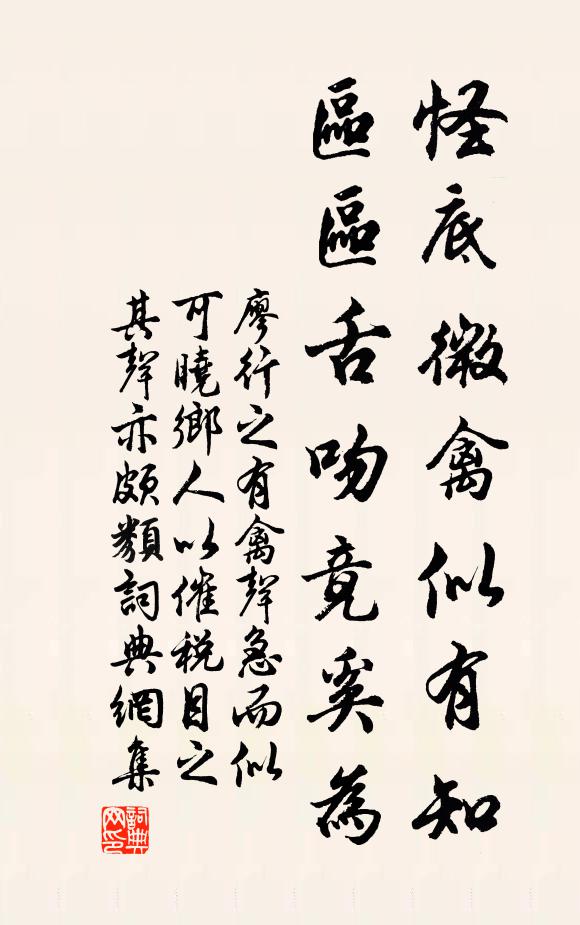 怪底微禽似有知
區區舌吻竟奚為
廖行之有禽聲急而似
可曉鄉人以催税目之
其聲亦頗類詞典網集
詞典
网印